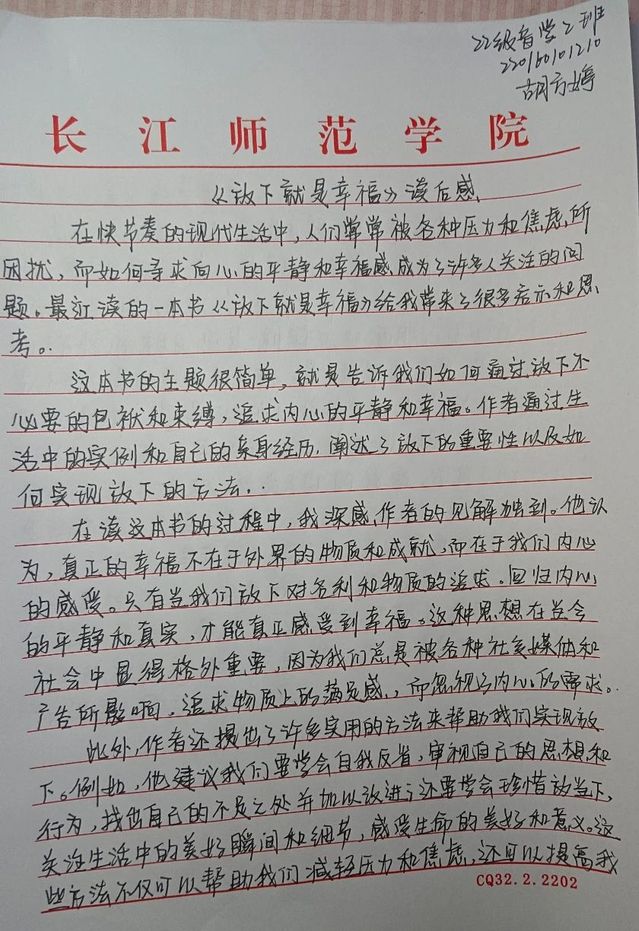 22级音学2班
220160101210
胡方婷
长江师范学院
《放下就是幸福》读后感
在快节奏的现代生活中,人们常常被各种压力和焦虑所
困扰,而如何寻求内心的平静和幸福感成为了许多人关注的问
题。最近读的一本书《放下就是幸福》给我带来了很多启示和思
考。
这本书的主题很简单,就是告诉我们如何通过放下不
必要的包袱和束缚,追求内心的平静和幸福。作者通过生
活中的实例和自己的亲身经历,阐述了放下的重要性以及如
何实现放下的方法。
在读这本书的过程中,我深感作者的见解独到。他认
为,真正的幸福不在于外界的物质和成就,而在于我们内心
的感受。只有当我们放下对名利和物质的追求,回归内心
的平静和真实,才能真正感受到幸福。这种思想在当今
社会中显得格外重要,因为我们总是被各种社交媒体和
广告所影响,追求物质上的满足感,而忽视了内心的需求。
此外,作者还提出了许多实用的方法来帮助我们实现放
下。例如,他建议我们要学会自我反省,审视自己的思想和
行为,找出自己的不足之处并加以改进;还要学会珍惜放当下,
关注生活中的美好瞬间和细节,感受生命的美好和意义。这
些方法不仅可以帮助我们减轻压力和焦虑,还可以提高我
CQ32.2.2202